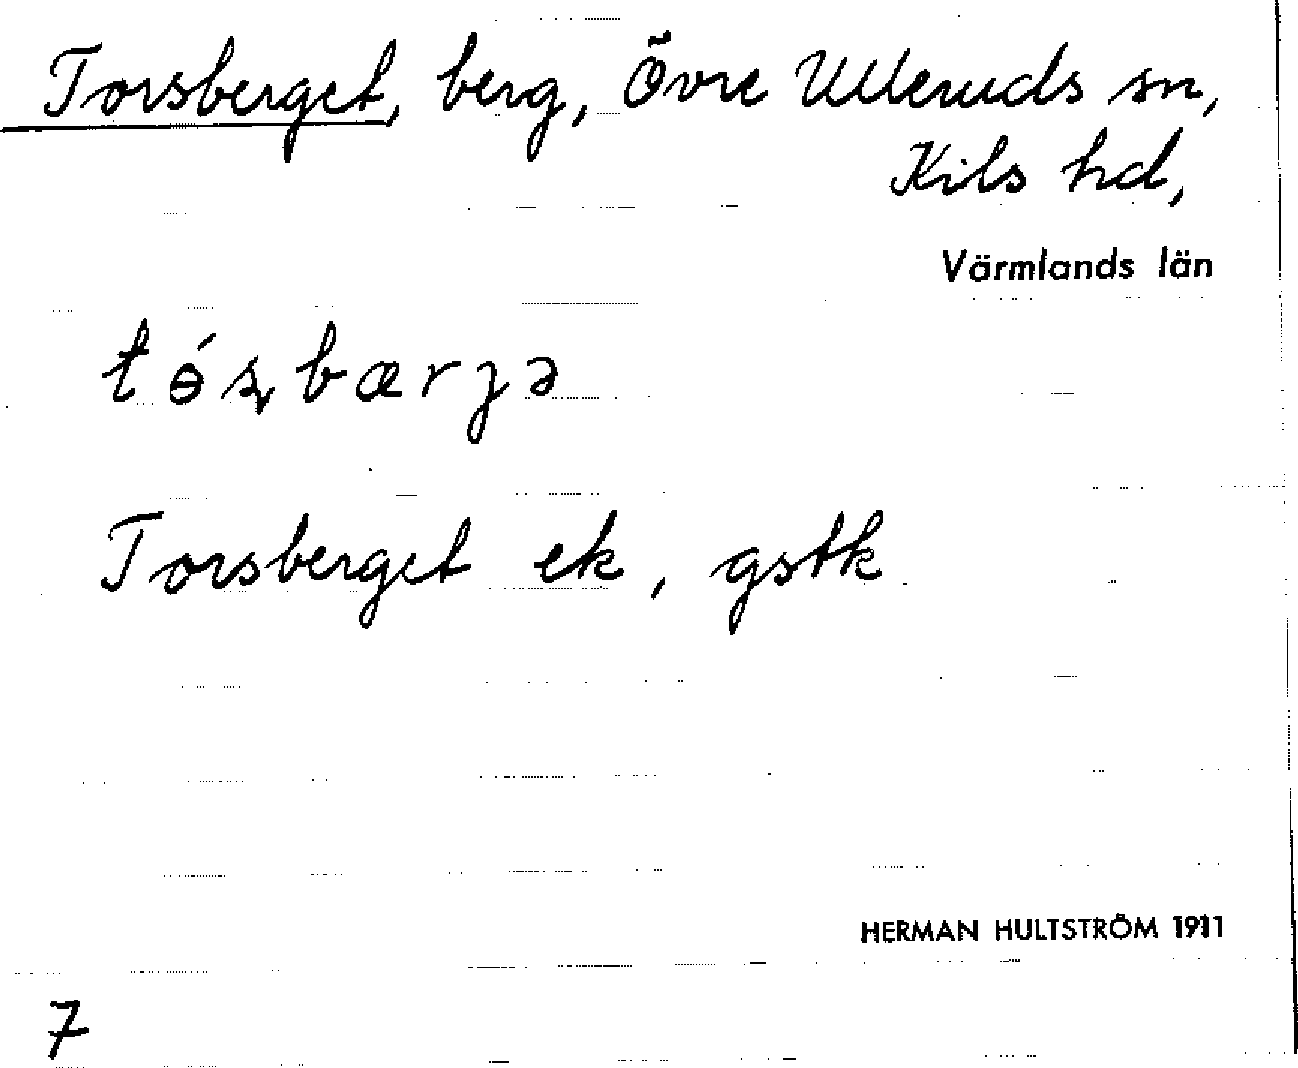 Torsberget, berg, Övre Ulleruds sn,
Kils hd,
Värmlands län
tɵ́ʂbærjə
Torsberget ek, gstk
HERMAN HULTSTRÖM 1911
7